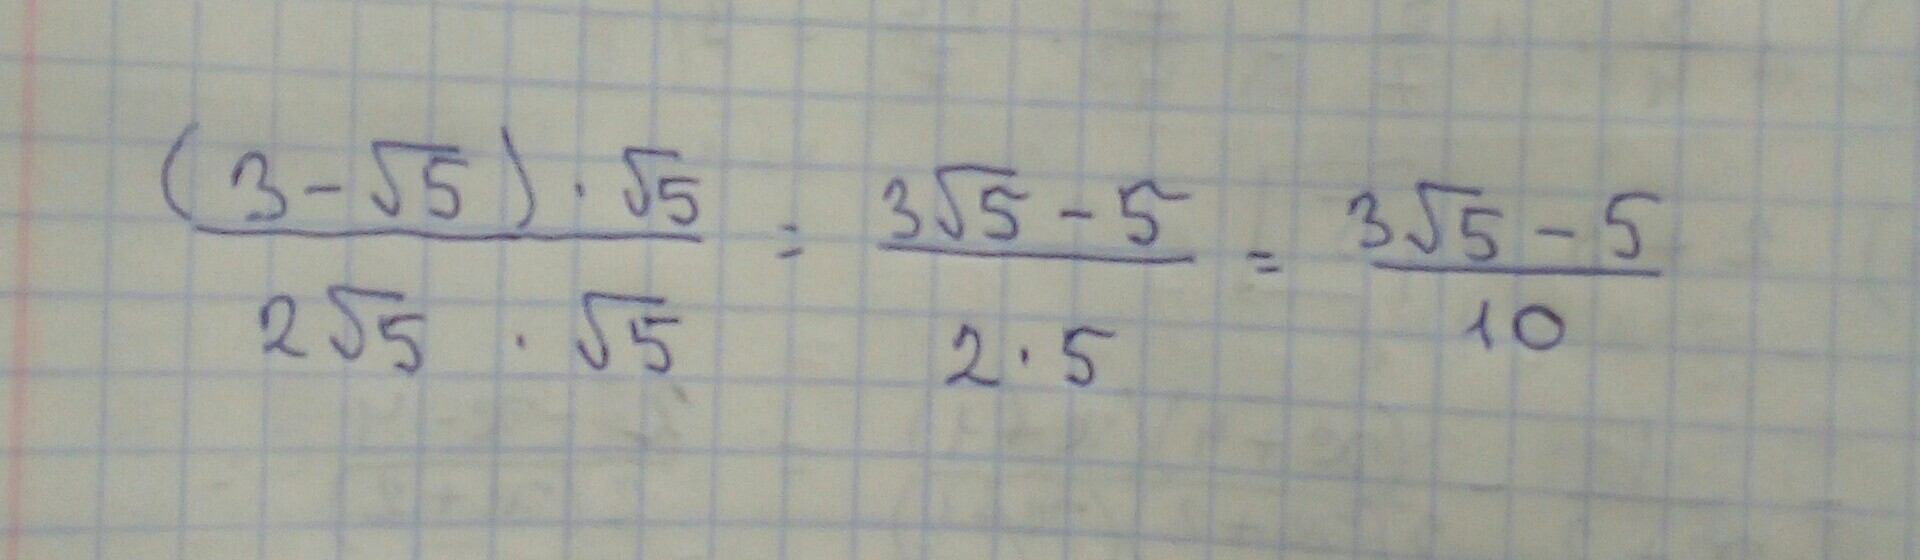 (3-√5)·√5 / 2√5 · √5 = 3√5-5 / 2·5 = 3√5-5 / 10